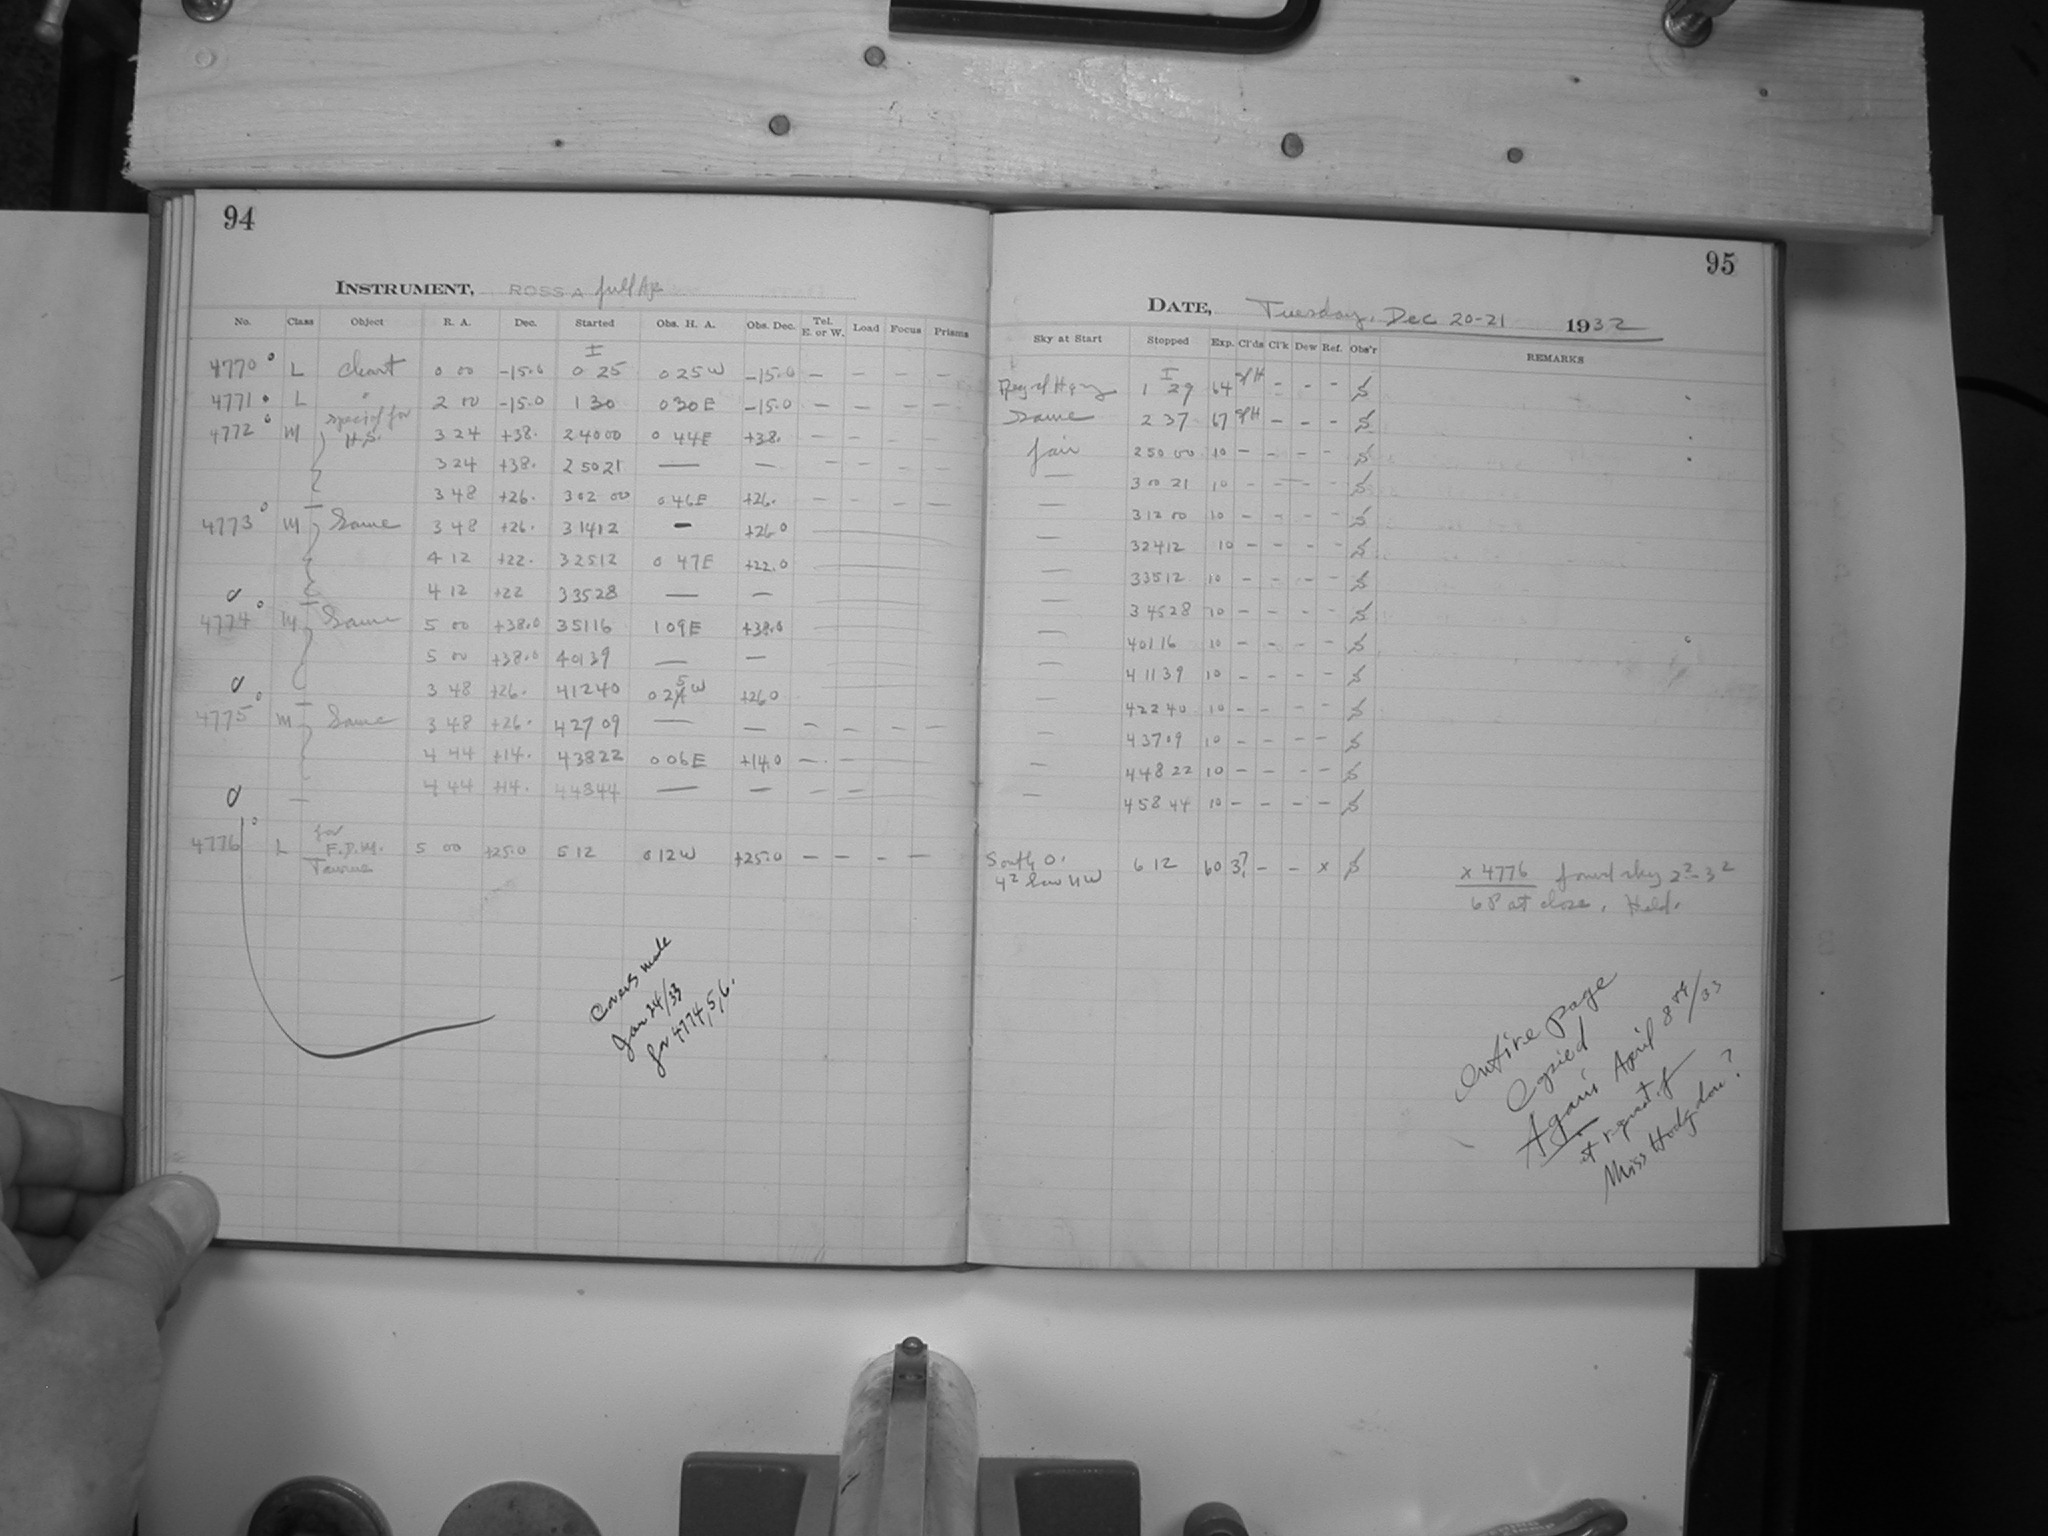 94
INSTRUMENT, ROSS A full Ap
No. Class Object R. A. Dec. Started Obs. H. A. Obs. Dec. Tel. E. or W. Load Focus Prisms
I
4770 L Chart 0 00 -15.0 0 25 0 25 W -15.0 — — — —
4771 L " 2 00 -15.0 1 30 0 30 E -15.0 — — — —
4772 M special for H.S. 3 24 +38. 2 40 00 0 44 E +38. — — — —
3 24 +38. 2 50 21 — — — — — —
3 48 +26. 3 02 00 0 46 E +26. — — — —
4773 M Same 3 48 +26. 3 14 12 — +26.0
4 12 +22. 3 25 12 0 47 E +22.0
4 12 +22 3 35 28 — —
4774 M Same 5 00 +38.0 3 51 16 1 09 E +38.0
5 00 +38.0 4 01 39 — —
3 48 +26. 4 12 40 0 25 W +26.0
4775 M Same 3 48 +26. 4 27 09 — — — — — —
4 44 +14. 4 38 22 0 06 E +14.0 — —
4 44 +14. 4 43 44 — — — —
4776 L for F.D.M. Taurus 5 00 +25.0 5 12 0 12 W +25.0 — — — —
Covers made
Jan 24/33
for 4774, 5, 6.
95
DATE, Tuesday, Dec 20-21 1932
Sky at Start Stopped Exp. Cl'ds Cl'k Dew Ref. Obs'r REMARKS
I
1 29 64 — — —
Same 2 37 67 — — —
fair 2 50 00 10 — — — —
— 3 00 21 10 — — — —
— 3 12 00 10 — — — —
— 3 24 12 10 — — — —
— 3 35 12 10 — — — —
— 3 45 28 10 — — — —
— 4 01 16 10 — — — —
— 4 11 39 10 — — — —
— 4 22 40 10 — — — —
— 4 37 09 10 — — — —
— 4 48 22 10 — — — —
— 4 58 44 10 — — — —
South 6 12 60 3? — — x
x 4776 found sky 2²-3²
68 at close. Held.
Entire page
Copied
Again April 8th/33
at request of
Miss Hodgdon?